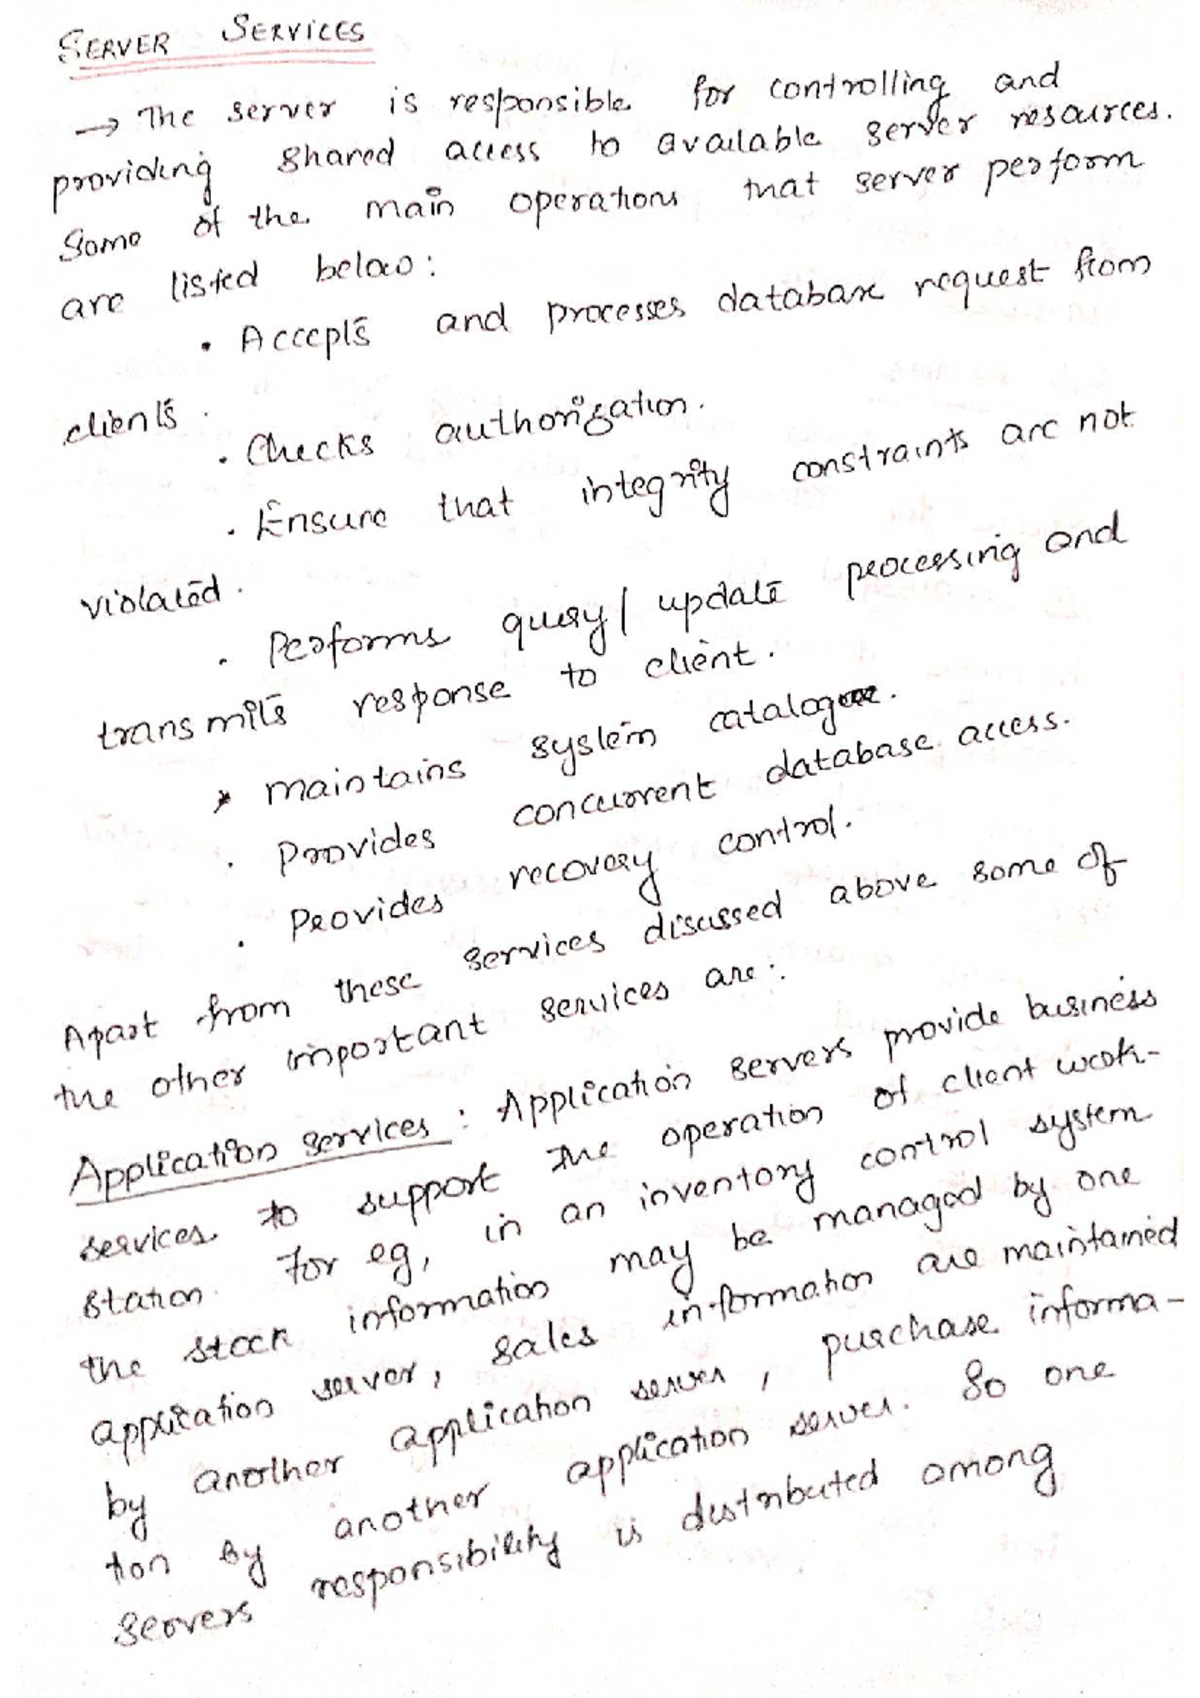 SERVER SERVICES
→ The server is responsible for controlling and
providing shared access to available server resources.
Some of the main operations that server perform
are listed below:
• Accepts and processes database request from
clients.
• Checks authorization.
• Ensure that integrity constraints are not
violated.
• Performs query/update processing and
transmits response to client.
* maintains system catalogue.
• Provides concurrent database access.
• Provides recovery control.
Apart from these services discussed above some of
the other important services are:
Application services: Application servers provide business
services to support the operation of client work-
station. For eg, in an inventory control system
the stock information may be managed by one
application server, sales information are maintained
by another application server, purchase informa-
tion by another application server. So one
servers responsibility is distributed among